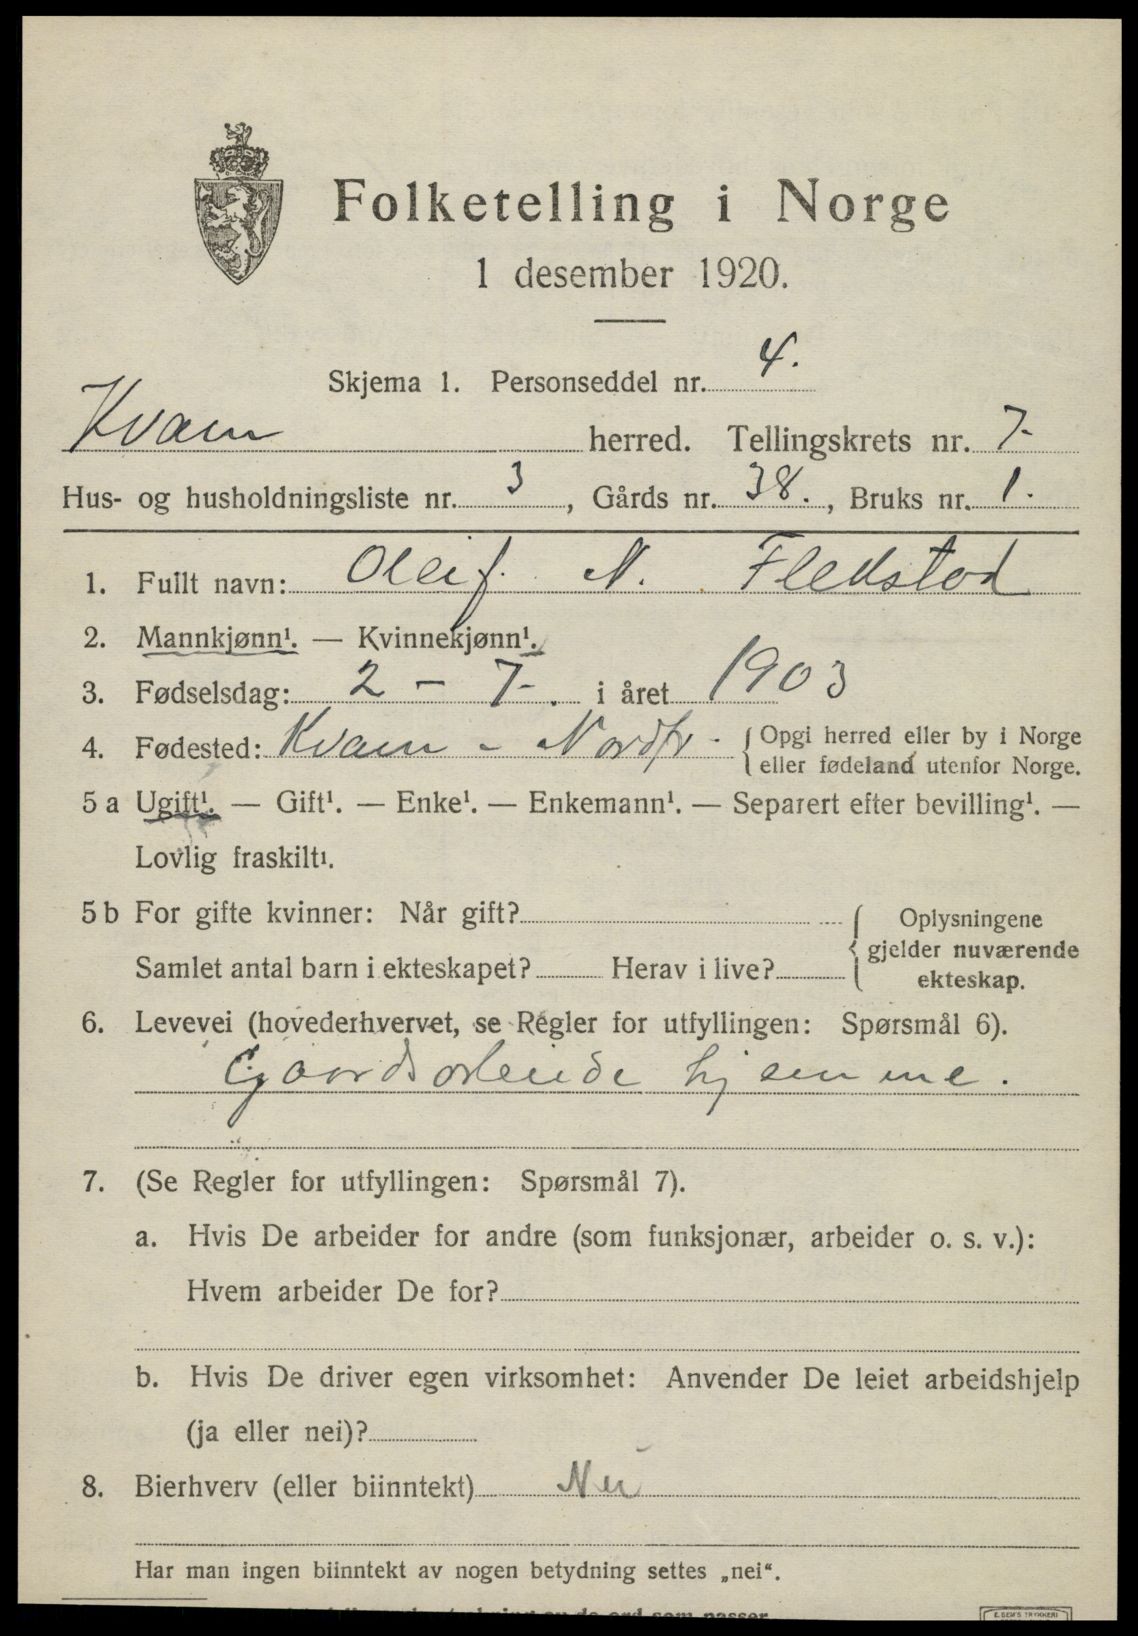 Folketelling i Norge
1 desember 1920.
Skjema 1. Personseddel nr. 4.
Kvam herred. Tellingskrets nr. 7.
Hus- og husholdningsliste nr. 3, Gårds nr. 38., Bruks nr. 1.
1. Fullt navn: Oleif. N. Flekstad
2. Mannkjønn¹. — Kvinnekjønn¹.
3. Fødselsdag: 2 - 7-. i året 1903
4. Fødested: Kvam - Nordfr - { Opgi herred eller by i Norge
eller fødeland utenfor Norge.
5 a Ugift¹. — Gift¹. — Enke¹. — Enkemann¹. — Separert efter bevilling¹. —
Lovlig fraskilt¹.
5 b For gifte kvinner: Når gift? { Oplysningene
gjelder nuværende
Samlet antal barn i ekteskapet? Herav i live?
ekteskap.
6. Levevei (hovederhvervet, se Regler for utfyllingen: Spørsmål 6).
Gaardsarbeide hjemme.
7. (Se Regler for utfyllingen: Spørsmål 7).
a. Hvis De arbeider for andre (som funksjonær, arbeider o. s. v.):
Hvem arbeider De for?
b. Hvis De driver egen virksomhet: Anvender De leiet arbeidshjelp
(ja eller nei)?
8. Bierhverv (eller biinntekt) Nei
Har man ingen biinntekt av nogen betydning settes „nei“.